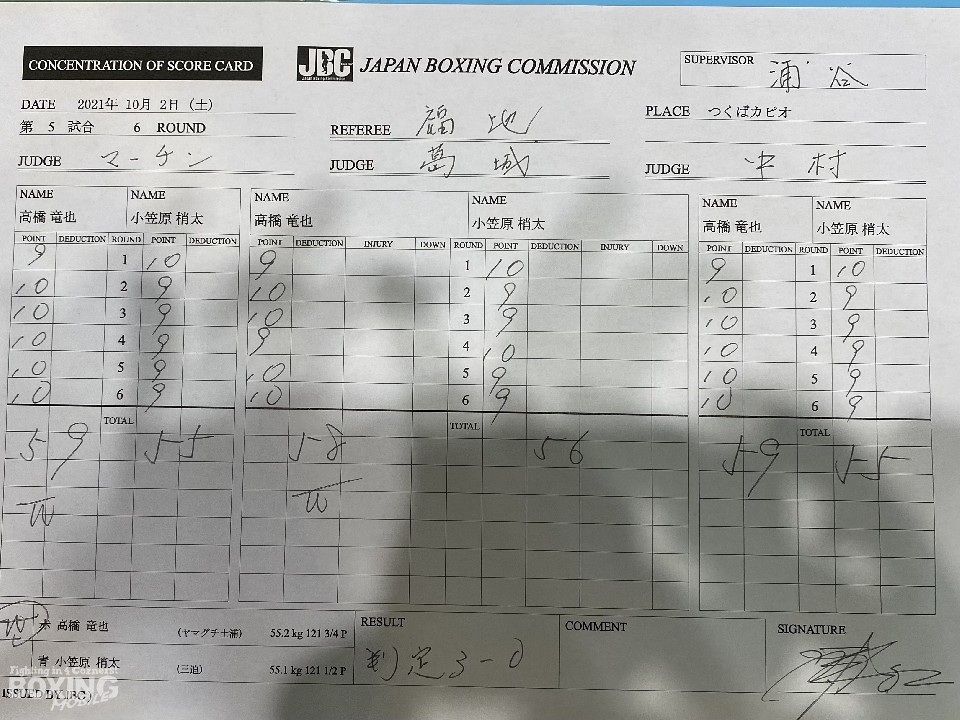 CONCENTRATION OF SCORE CARD
JBC JAPAN BOXING COMMISSION
SUPERVISOR 浦谷
DATE 2021年 10月 2日（土）
PLACE つくばカピオ
第 5 試合 6 ROUND
REFEREE 福地
JUDGE マーチン
JUDGE 葛城
JUDGE 中村
NAME NAME NAME NAME NAME NAME
高橋 竜也 小笠原 梢太 高橋 竜也 小笠原 梢太 高橋 竜也 小笠原 梢太
POINT DEDUCTION ROUND POINT DEDUCTION POINT DEDUCTION INJURY DOWN ROUND POINT DEDUCTION INJURY DOWN POINT DEDUCTION ROUND POINT DEDUCTION
9 1 10 9 1 10 9 1 10
10 2 9 10 2 9 10 2 9
10 3 9 10 3 9 10 3 9
10 4 9 9 4 10 10 4 9
10 5 9 10 5 9 10 5 9
10 6 9 10 6 9 10 6 9
TOTAL TOTAL TOTAL
59 55 58 56 59 55
W W
赤 高橋 竜也 （ヤマグチ土浦） 55.2 kg 121 3/4 P
青 小笠原 梢太 （三迫） 55.1 kg 121 1/2 P
RESULT
判定 3-0
COMMENT
SIGNATURE
ISSUED BY JBC
Fighting in 4 Corners!
BOXING
MOBILE